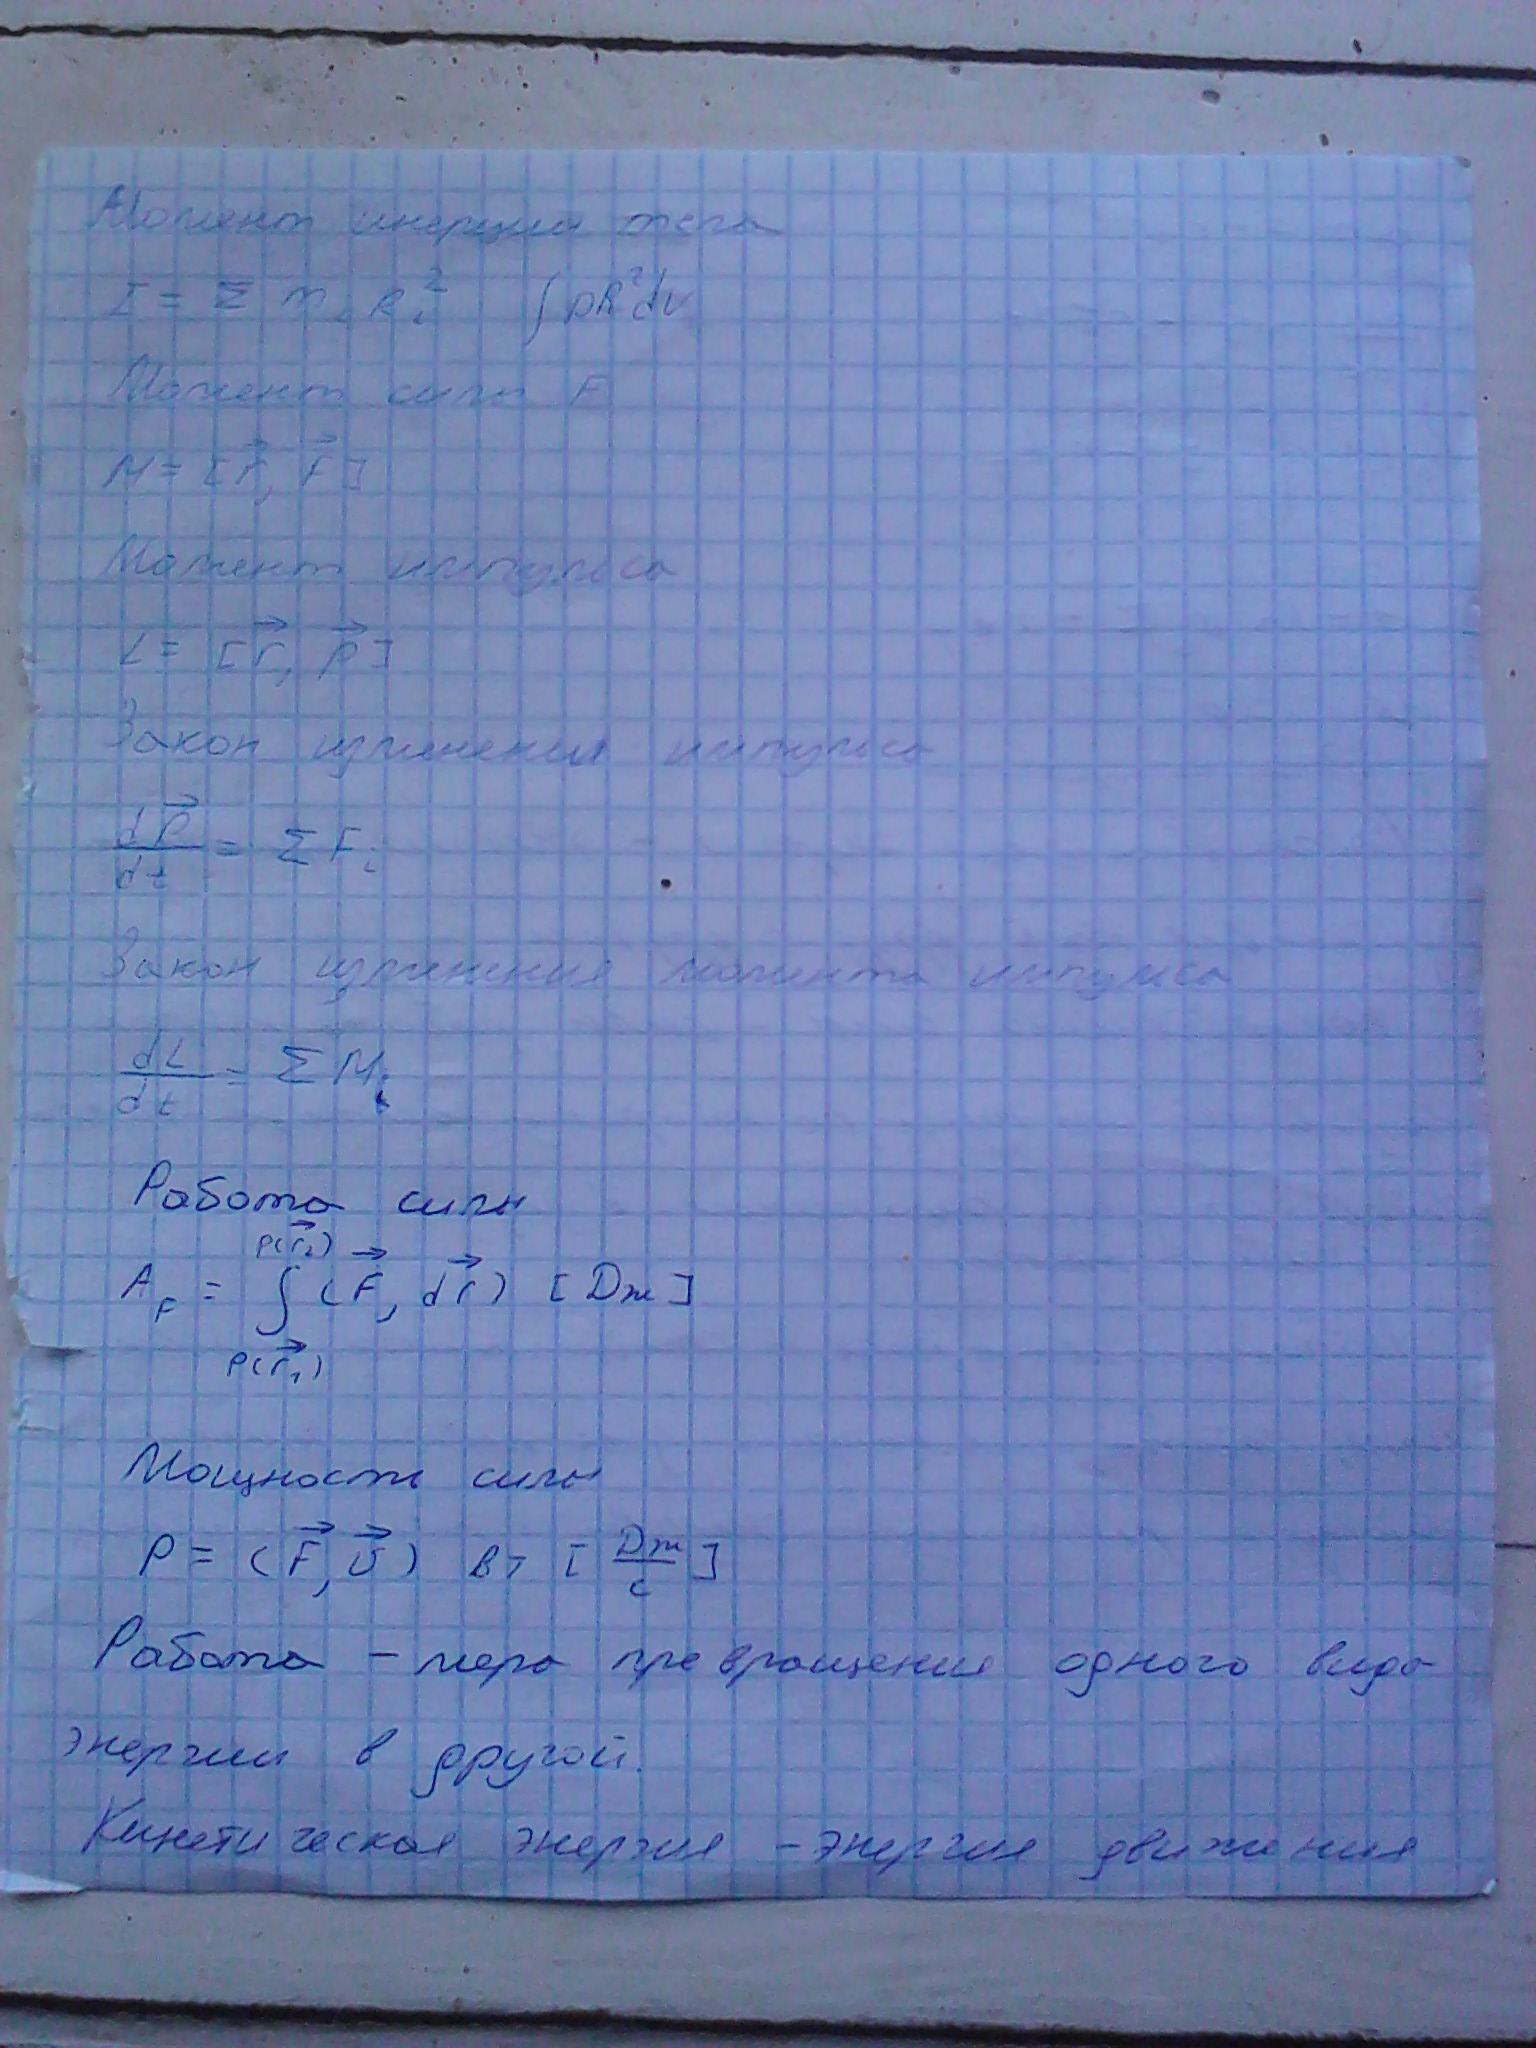 Момент инерции тела
I = Σ mᵢ Rᵢ² ∫ρR²dv
Момент силы F
M = [r⃗, F⃗]
Момент импульса
L = [r⃗, p⃗]
Закон изменения импульса
dP⃗/dt = Σ Fᵢ
Закон изменения момента импульса
dL/dt = Σ Mᵢ
Работа силы
p(r⃗₂)
A_F = ∫ (F⃗, dr⃗) [Дж]
p(r⃗₁)
Мощность силы
P = (F⃗, υ⃗) Вт [Дж/с]
Работа – мера превращения одного вида
энергии в другой.
Кинетическая энергия – энергия движения